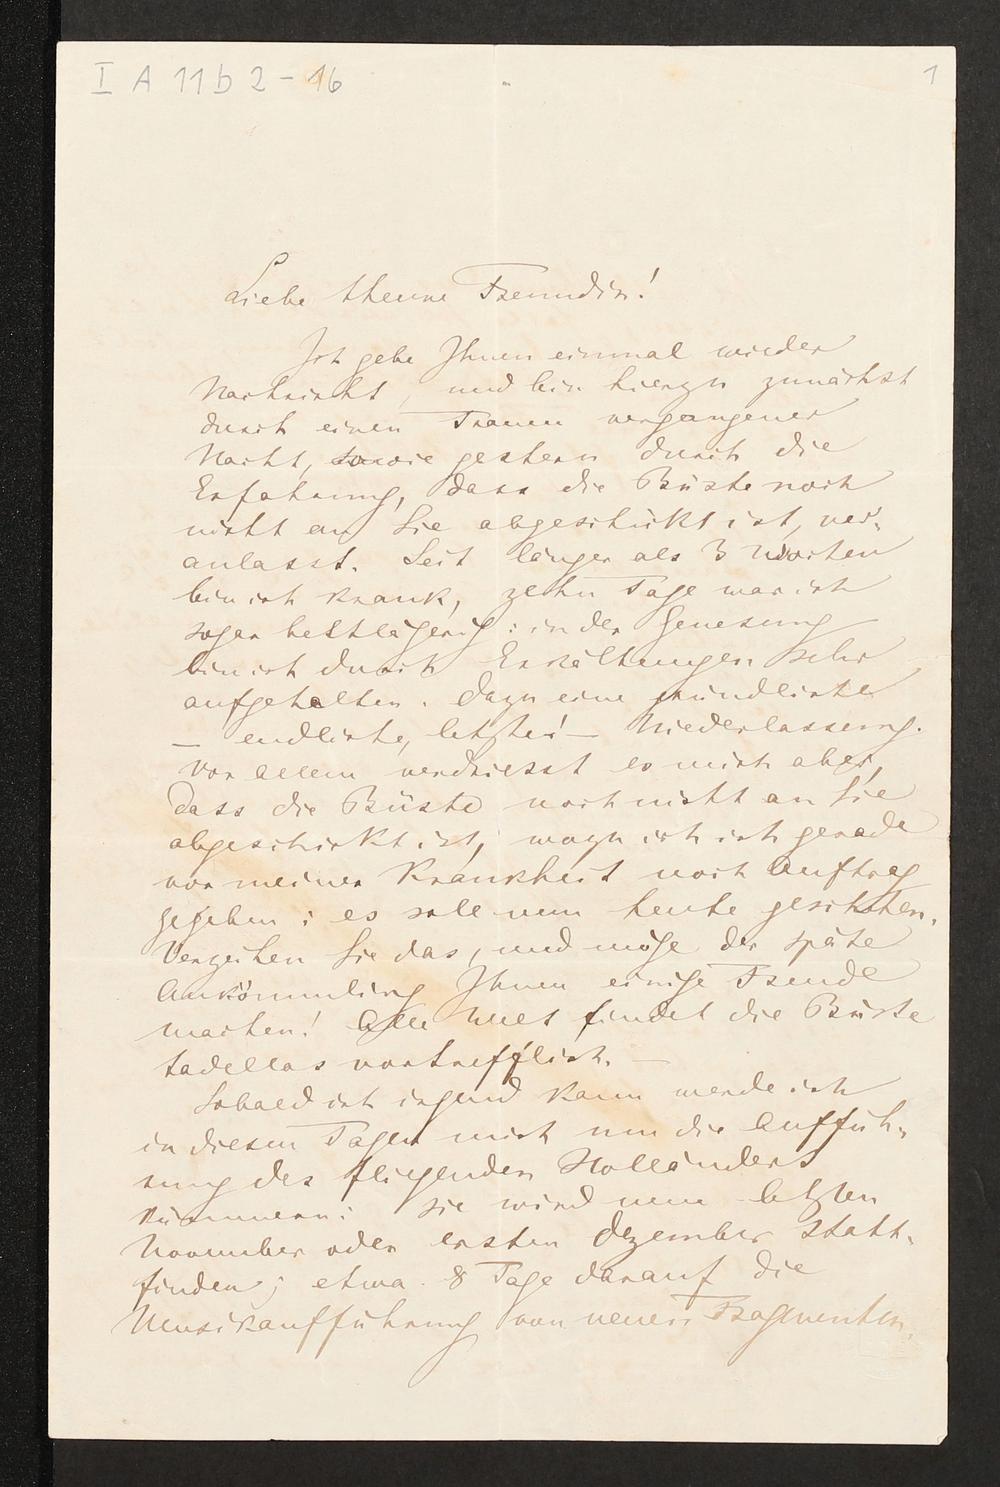 I A 11 b 2 - 16
1
Liebe theure Freundin!
Ich gebe Ihnen einmal wieder
Nachricht, und bin hierzu zunächst
durch einen Traum vergangener
Nacht, sowie gestern durch die
Erfahrung, dass die Büste noch
nicht an Sie abgeschickt ist, ver-
anlasst. Seit länger als 3 Wochen
bin ich krank, zehn Tage war ich
sogar bettlägerig: in der Genesung
bin ich durch Erkältungen sehr
aufgehalten. Dazu eine gründliche
– endliche, letzte! – Niederlassung.
Vor allem verdriesst es mich aber,
dass die Büste noch nicht an Sie
abgeschickt ist, wozu ich ich gerade
vor meiner Krankheit noch Auftrag
gegeben: es soll nun heute geschehen.
Verzeihen Sie das, und möge der späte
Ankömmling Ihnen einige Freude
machen! Alle Welt findet die Büste
tadellos vortrefflich. —
Sobald ich irgend kann werde ich
in diesen Tagen mich um die Auffüh-
rung des fliegenden Holländers
kümmern: sie wird nun letzten
November oder ersten Dezember statt-
finden; etwa 8 Tage darauf die
Musikaufführung von neuen Fragmenten.